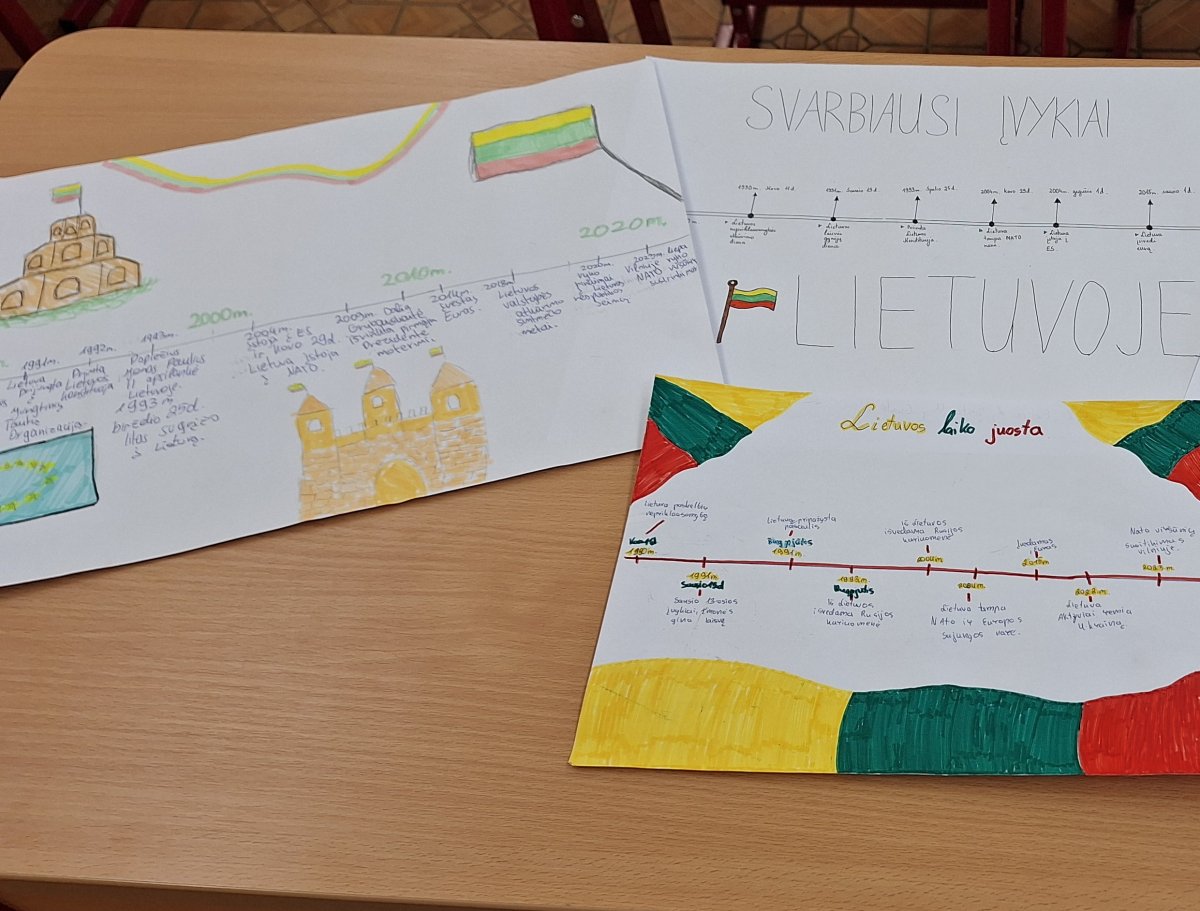 2000m.
2010m.
2020m.
1991m.
Lietuva
Organizaciją.
1992m.
Priimta
Lietuvos
konstitucija
1993m.
Popiežius
Jonas Paulius
II apsilankė
Lietuvoje.
1993m
birželio 25d.
litas sugrįžo
į Lietuvą.
2004m.
įstoja į ES
ir kovo 29d.
Lietuva įstoja
į NATO.
2009m. Dalia
Grybauskaitė
išrinkta pirmąja
Prezidente
moterimi.
2014m.
įvestas
Euras.
2018m.
Lietuvos
valstybės
atkūrimo
šimtmečio
metai.
2020m.
vyko
rinkimai
į Lietuvos
respublikos
Seimą
2023m. liepa
Vilniuje vyko
NATO viršūnių
susitikimas
SVARBIAUSI ĮVYKIAI
1990m. Kovo 11d.
1991m. Sausio 13d.
2004m. kovo 29d.
2004m. gegužės 1d.
2015m. sausio 1d.
Lietuvos
Lietuva
tampa NATO
Lietuva
įstoja į
ES.
Lietuva
įsivedė
eurą.
LIETUVOJE
Lietuvos laiko juosta
Lietuva paskelbta
nepriklausomybę
1990m.
1991m.
Sausio 13d
Sausio 13-osios
įvykiai, žmonės
gina laisvę
Lietuvą pripažysta
pasaulis
Rugpjūtis
1991m.
1993m.
Rugpjūtis
iš Lietuvos
išvedama Rusijos
kariuomenė
iš Lietuvos
išvedama Rusijos
kariuomenė
2004m.
Lietuva tampa
Nato ir Europos
Sąjungos nare.
Įvedamas
Euras
2015m
2022m.
Lietuva
Aktyviai remia
Ukrainą
Nato viršūnių
susitikimas
Vilniuje.
2023m.